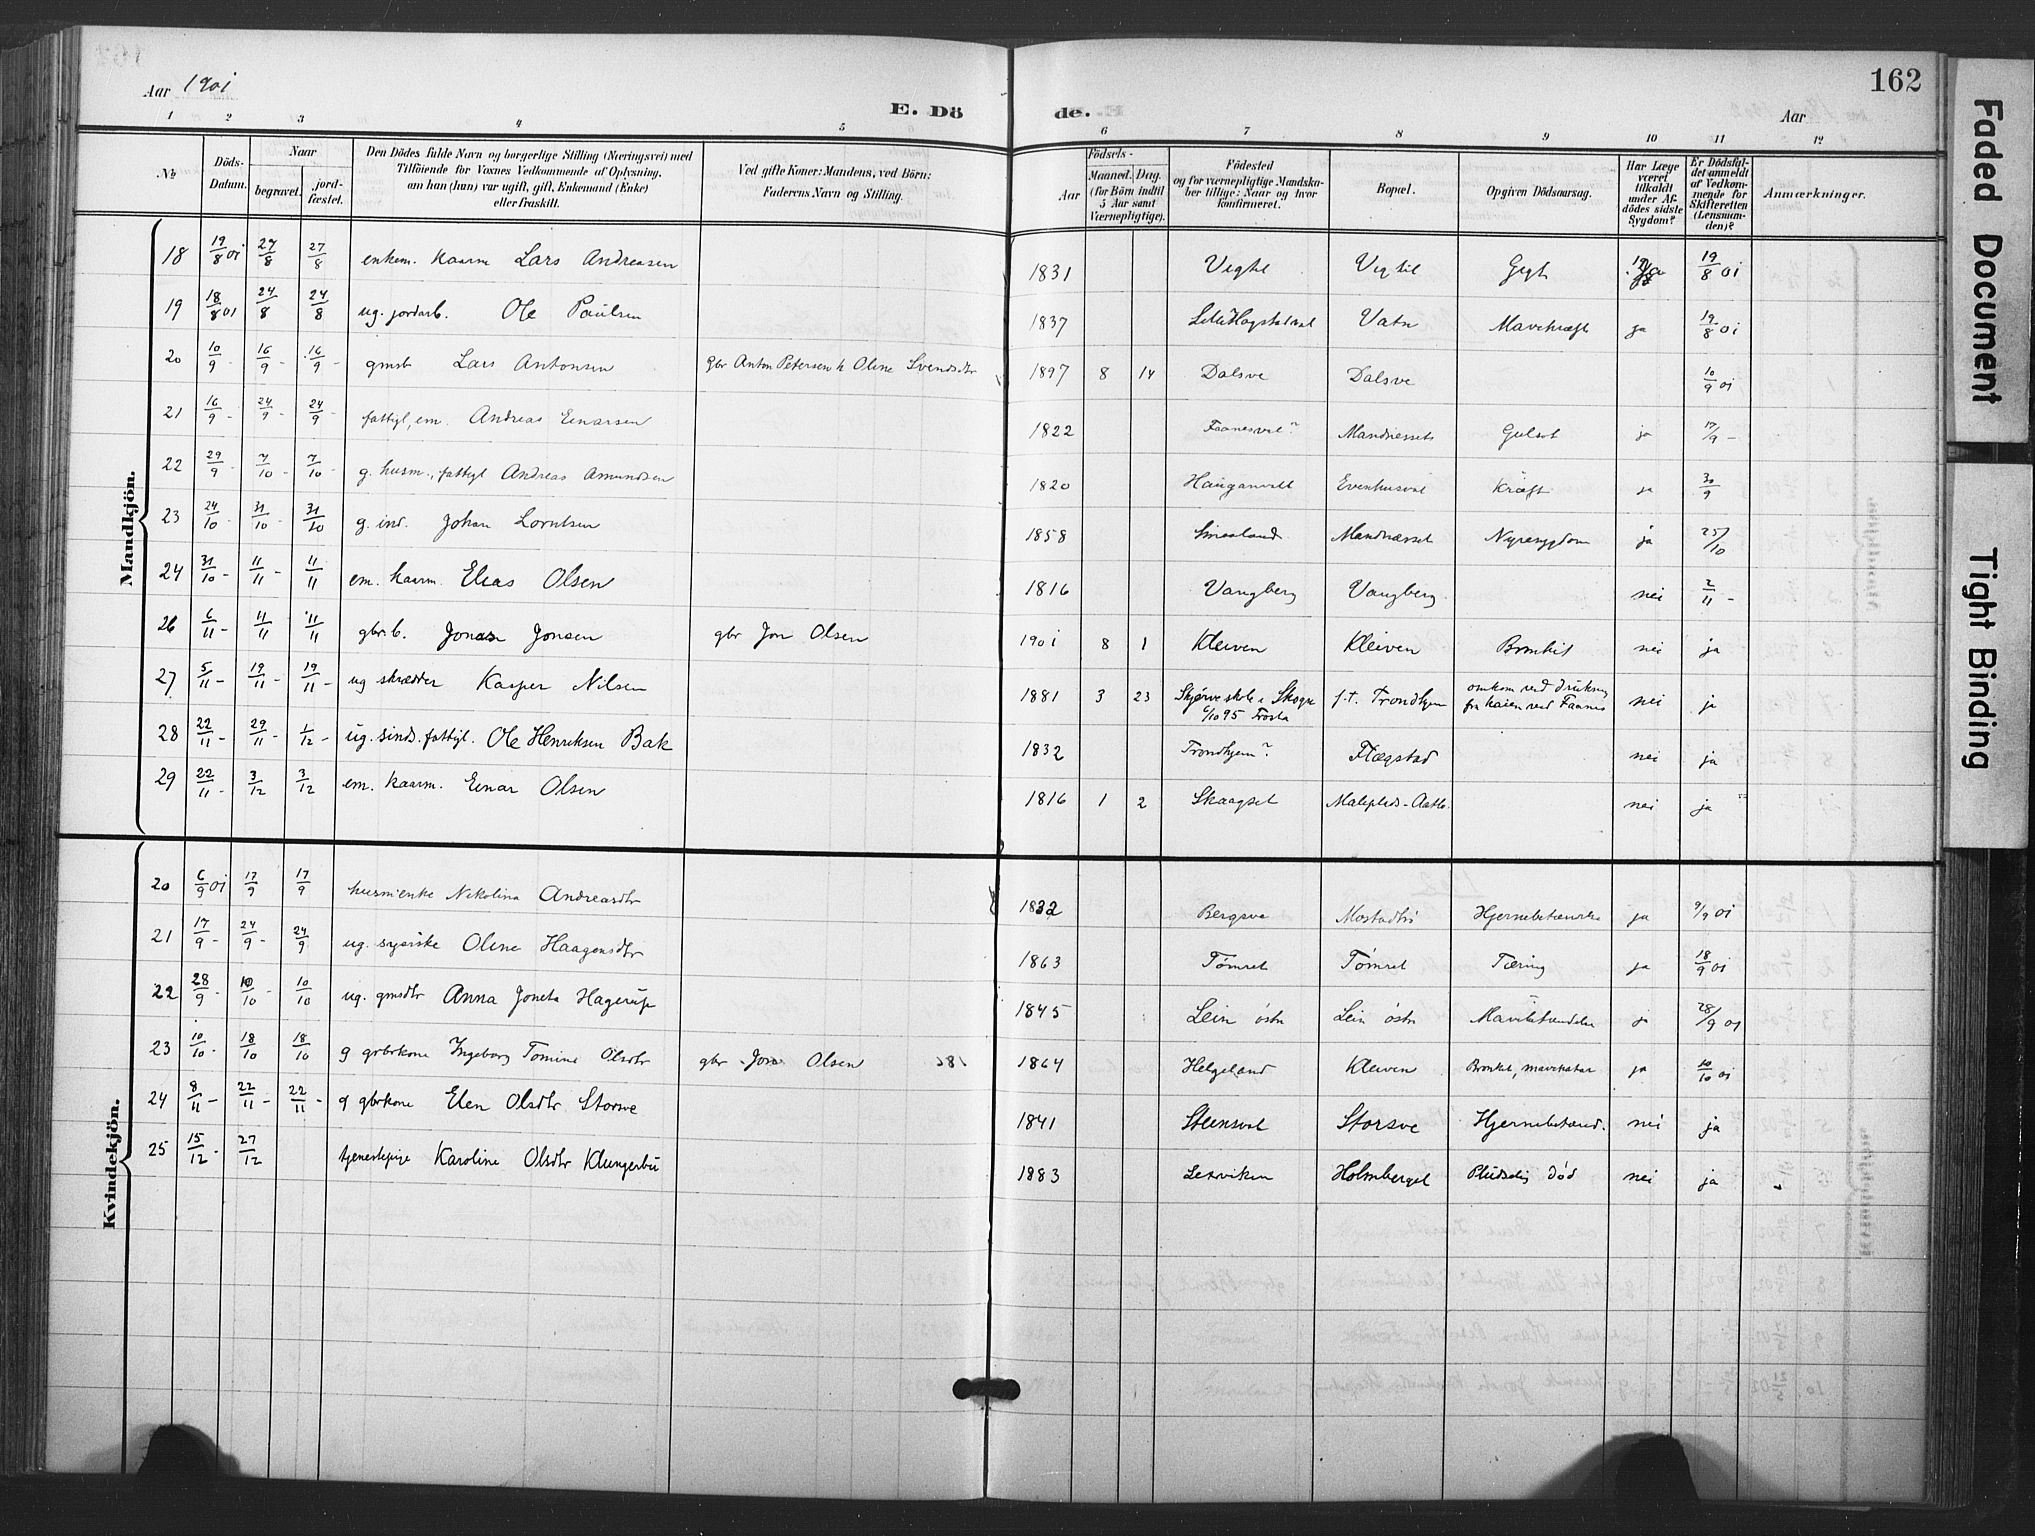 162
Aar 1901
E. Dö de.
Aar
1 2 3 4 5 6 7 8 9 10 11 12
№
Döds-Datum.
Naar
begravet.
jord-fæstet.
Den Dödes fulde Navn og borgerlige Stilling (Næringsvei) med
Tilföiende for Voxnes Vedkommende af Oplysning,
om han (hun) var ugift, gift, Enkemand (Enke)
eller fraskilt.
Ved gifte Koner: Mandens, ved Börn:
Faderens Navn og Stilling.
Födsels-
Aar
Maaned. Dag.
(for Börn indtil
5 Aar samt
Værnepligtige).
Födested
og for værnepligtige Mandska-
ber tillige: Naar og hvor
konfirmeret.
Bopæl.
Opgiven Dödsaarsag.
Har Læge
været
tilkaldt
under Af-
dödes sidste
Sygdom?
Er Dödsfal-
det anmeldt
af Vedkom-
mende for
Skifteretten
(Lensman-
den)?
Anmærkninger.
Mandkjön.
18 19/8 01 27/8 27/8 enkem. kaarm Lars Andreasen 1831 Gigt 19/8 01
19 18/8 01 24/8 24/8 ug. jordarb. Ole Paulsen 1837 Vatn Mavekræft ja 19/8 01
20 10/9 - 16/9 - 16/9 - gmsb Lars Antonsen gbr Anton Petersen h Oline Svendsdtr 1897 8 14 Dalsve Dalsve 10/9 01
21 16/9 - 24/9 - 24/9 - fattigl, em. Andreas Einarsen 1822 Faanesval? Mandræssets Gulsot ja 17/9 -
22 29/9 - 7/10 - 7/10 - g. husm., fattigl Andreas Amundsen 1820 Evenhusval Kræft ja 30/9
23 24/10 - 31/10 - 31/10 g. ind. Johan Lorntsen 1858 Mandræsset Nyresygdom ja 25/10
24 31/10 - 11/11 - 11/11 em. kaarm. Elias Olsen 1816 Vangberg Vangberg nei 2/11 -
26 6/11 - 11/11 11/11 gbr.b. Jonas Jonsen gbr Jon Olsen 1901 8 1 Kleiven Kleiven Bronkit nei ja
27 5/11 - 19/11 - 19/11 - ug skrædder Kasper Nilsen 1881 3 23 Skjørve skole i Skogn f.t. Trondhjem omkom ved drukning nei ja
6/10 95 Frosta fra kaien ved Faanes
28 22/11 - 29/11 - 1/12 - ug. sinds. fattigl. Ole Henriksen Bak 1832 Trondhjem? Flægstad nei ja
29 22/11 - 3/12 3/12 em. kaarm. Einar Olsen 1816 1 2 Skaagset nei ja
Kvindekjön.
20 6/9 01 17/9 17/9 husmenke Nikolina Andreasdtr 1832 Bergsve Hjernebetændelse ja 9/9 01
21 17/9 - 24/9 - 24/9 ug. sypike Oline Haagensdtr 1863 Tømret Tømret Tæring ja 18/9 01
22 28/9 - 10/10 - 10/10 ug. gmsdtr Anna Joneta Hagerup 1845 Lein østr Lein østr Mavebetændelse ja 28/9 01
23 10/10 - 18/10 18/10 g grbrkone Ingeborg Tomine Olsdtr gbr Jon Olsen 1864 Helgeland Kleiven Bronkit, mavekatar ja 10/10 01
24 8/11 - 22/11 - 22/11 - g gbrkone Elen Olsdtr Storsve 1841 Steinsval Storsve Hjernebetænd. nei ja
25 15/12 - 27/12 tjenestepige Karoline Olsdtr Klungerbu 1883 Leksviken Holmberget Pludselig død nei ja
Faded Document
Tight Binding